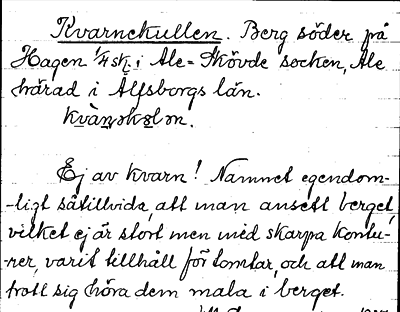 Kvarnekullen. Berg söder på
Hagen 1/4 sk. i Ale-Skövde socken, Ale
härad i Älfsborgs län.
Ej av kvarn! Namnet egendom-
-ligt såtillvida, att man ansett berget,
vilket ej är stort men med skarpa kontu-
rer, varit tillhåll för tomtar, och att man
trott sig höra dem mala i berget.